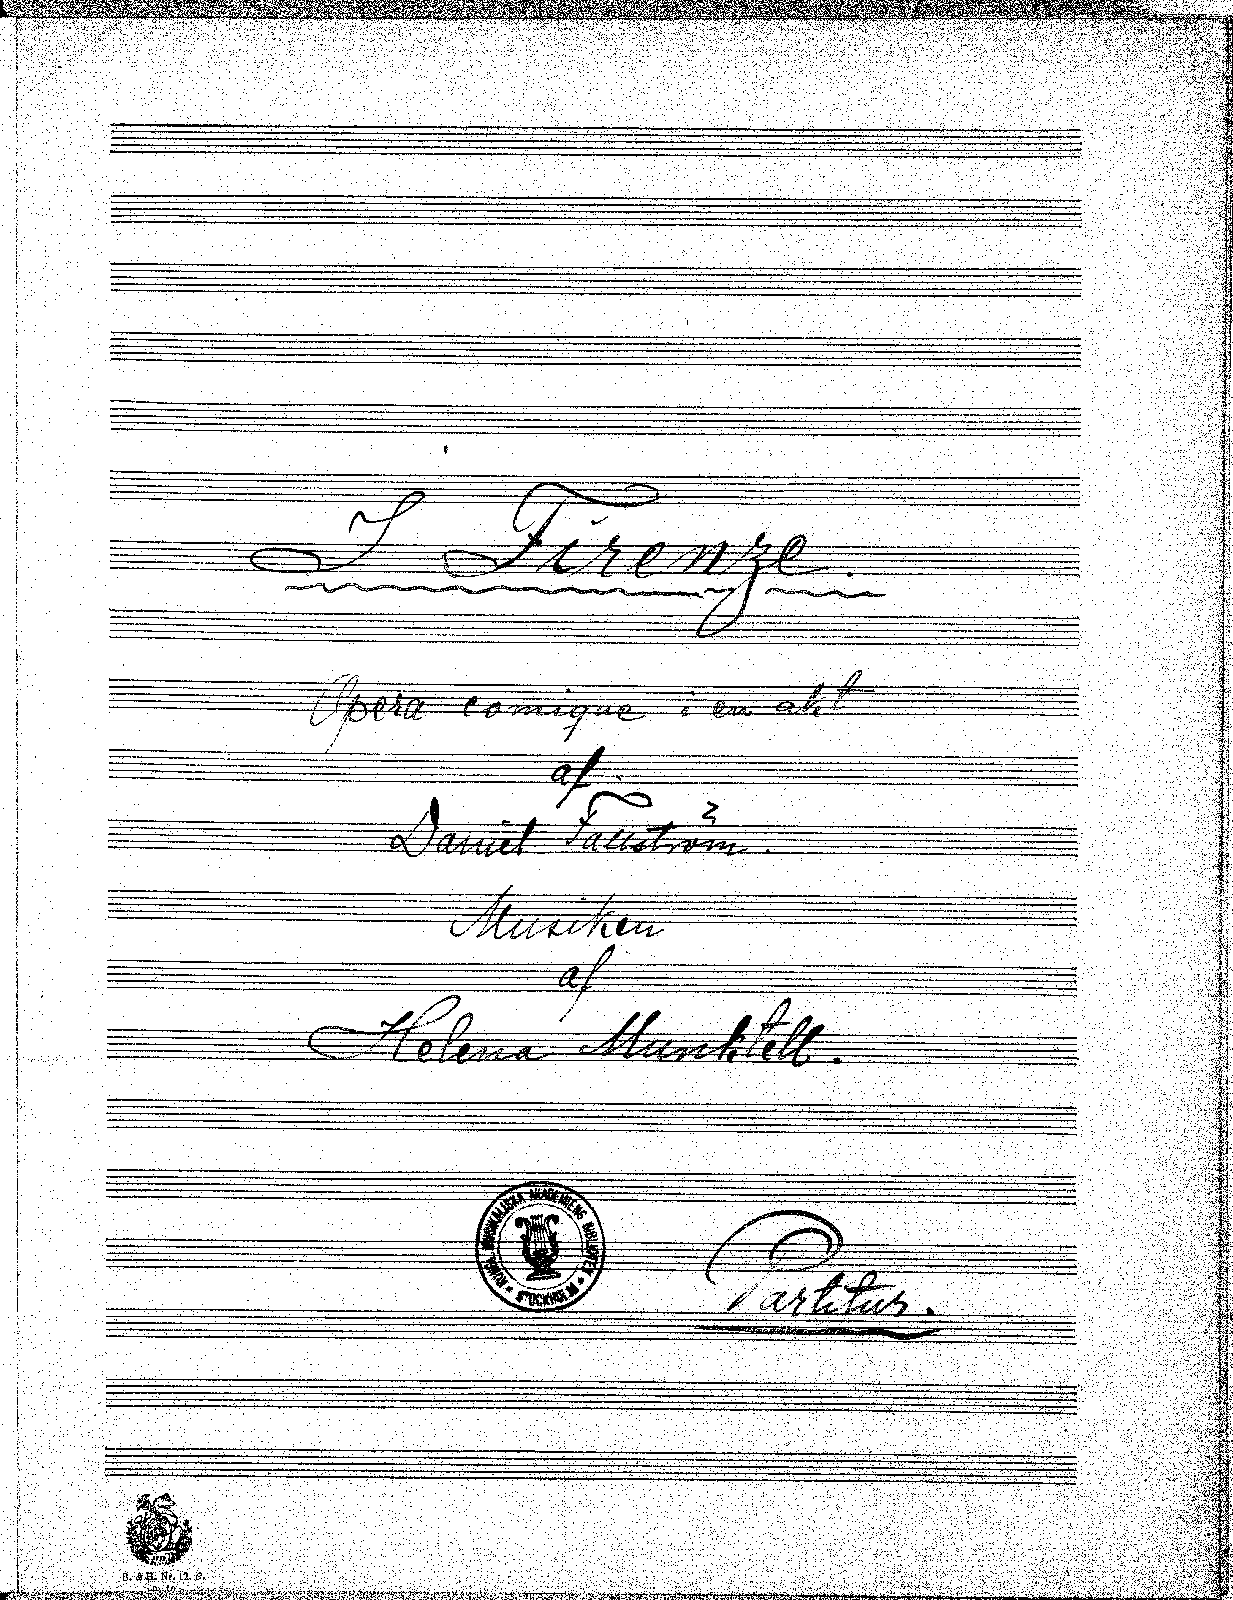 I Firenze.
Opera comique i en akt
af
Daniel Fallström.
Musiken
af
Helena Munktell.
KUNGL. MUSIKALISKA AKADEMIENS BIBLIOTEK * STOCKHOLM *
Partitur.
B. & H. Nr. 12. C.